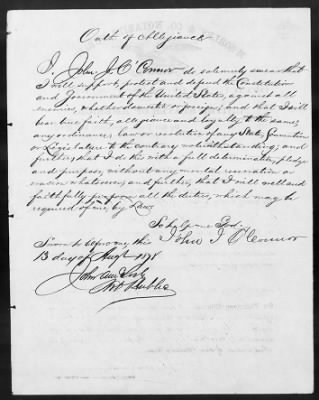 Oath of Allegiance
I, John J. O'Connor do solemnly swear that
I will support, protect and defend the Constitution
and Government of the United States, against all
enemies, whether domestic or foreign; and that I will
bear true faith, allegiance and loyalty to the same,
any ordinance, law or resolution of any State, Convention
or Legislature to the contrary notwithstanding; and
further, that I do this with a full determination, pledge
and purpose, without any mental reservation or
evasion whatsoever, and further, that I will well and
faithfully perform all the duties, which may be
required of me, by Law.
So help me God.
John J O'Connor
Sworn to before me this
13 day of Augt 1878
John
Not Public